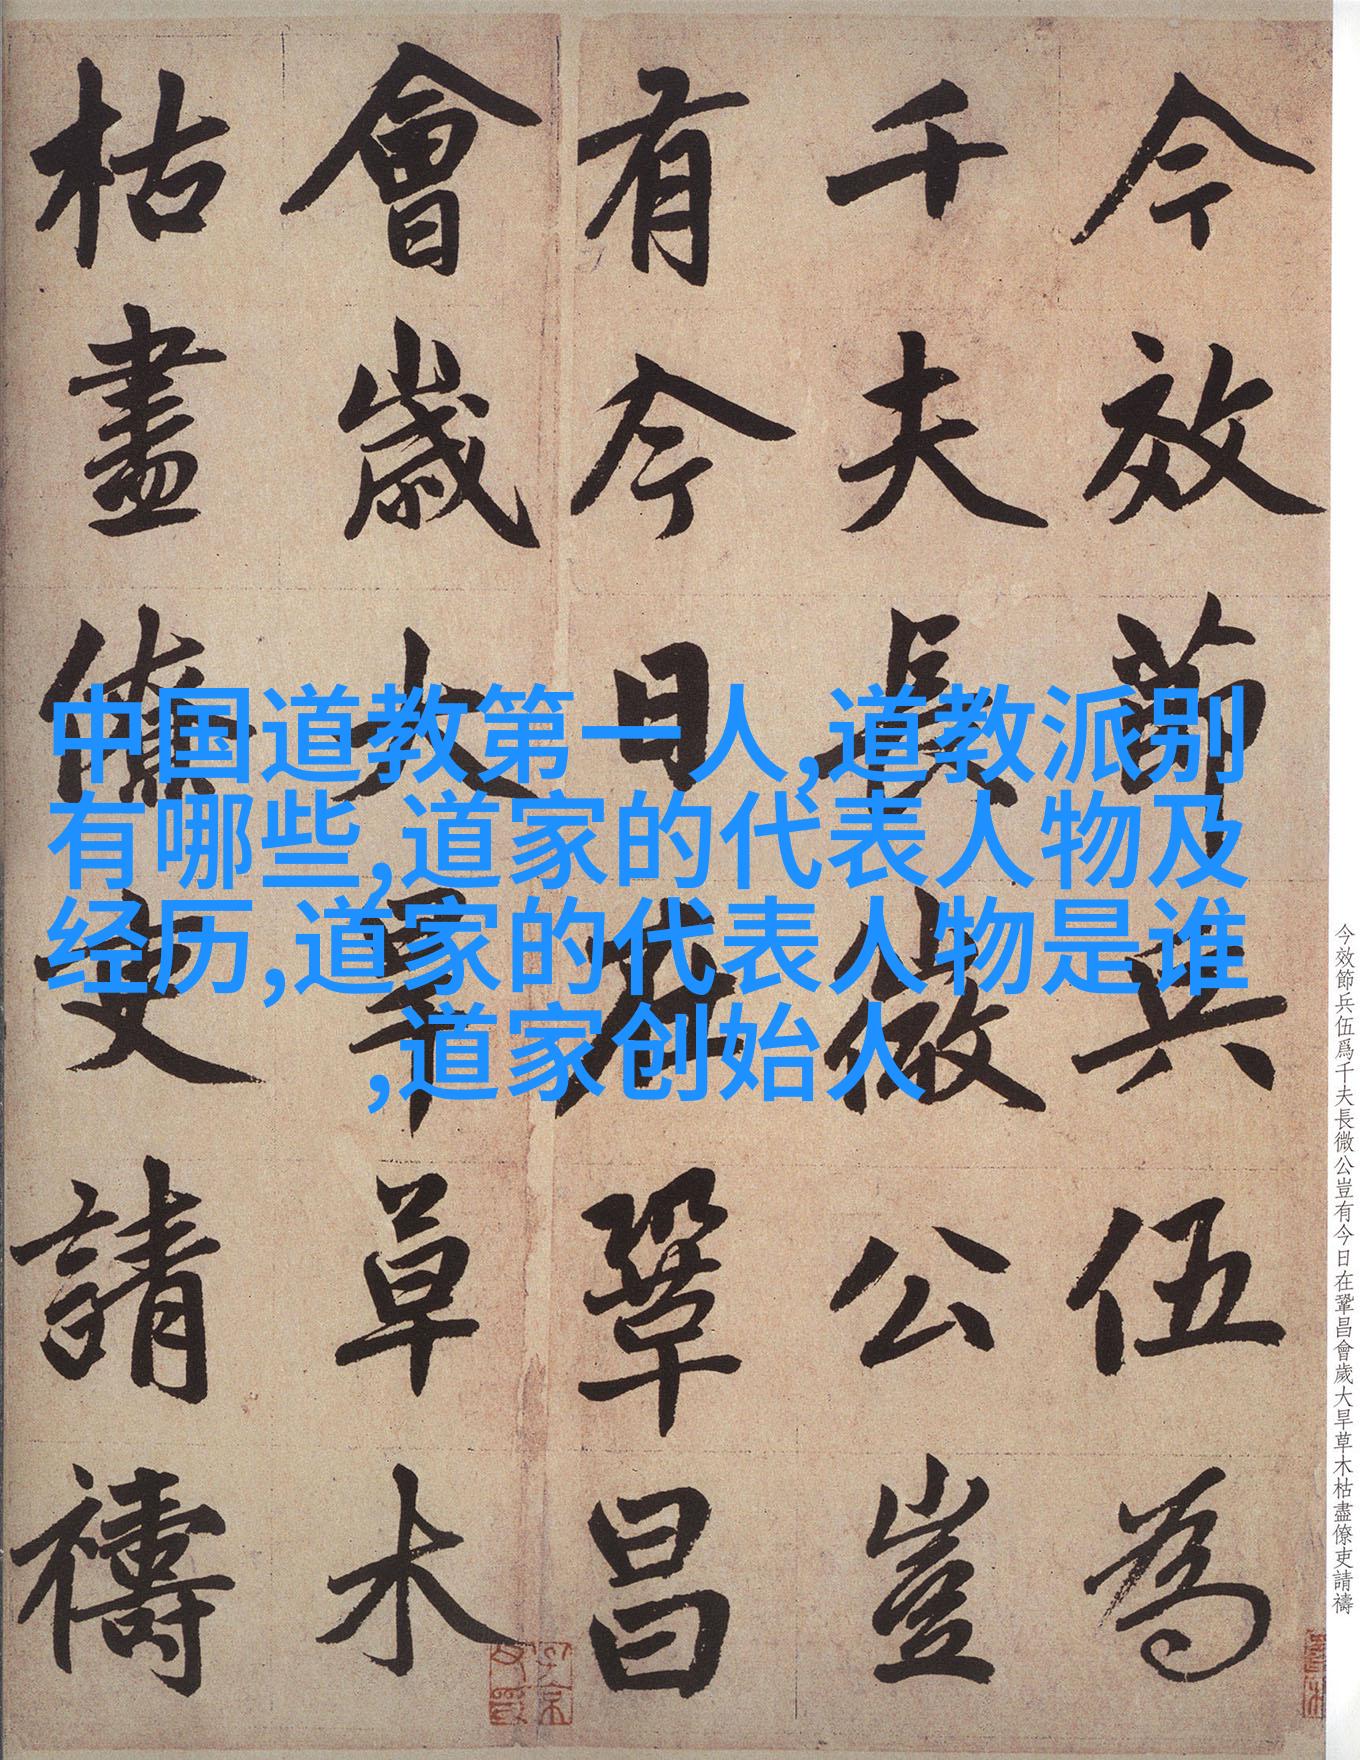 今效節兵伍為
千夫長微公豈
有今日在鞏昌
會歲大旱草木
枯盡僚吏請禱
中国道教第一人,道教派别
有哪些,道家的代表人物及
经历,道家的代表人物是谁
,道家创始人
今效節兵伍爲千夫長微公豈有今日在鞏昌會歲大旱草木枯盡僚吏請禱